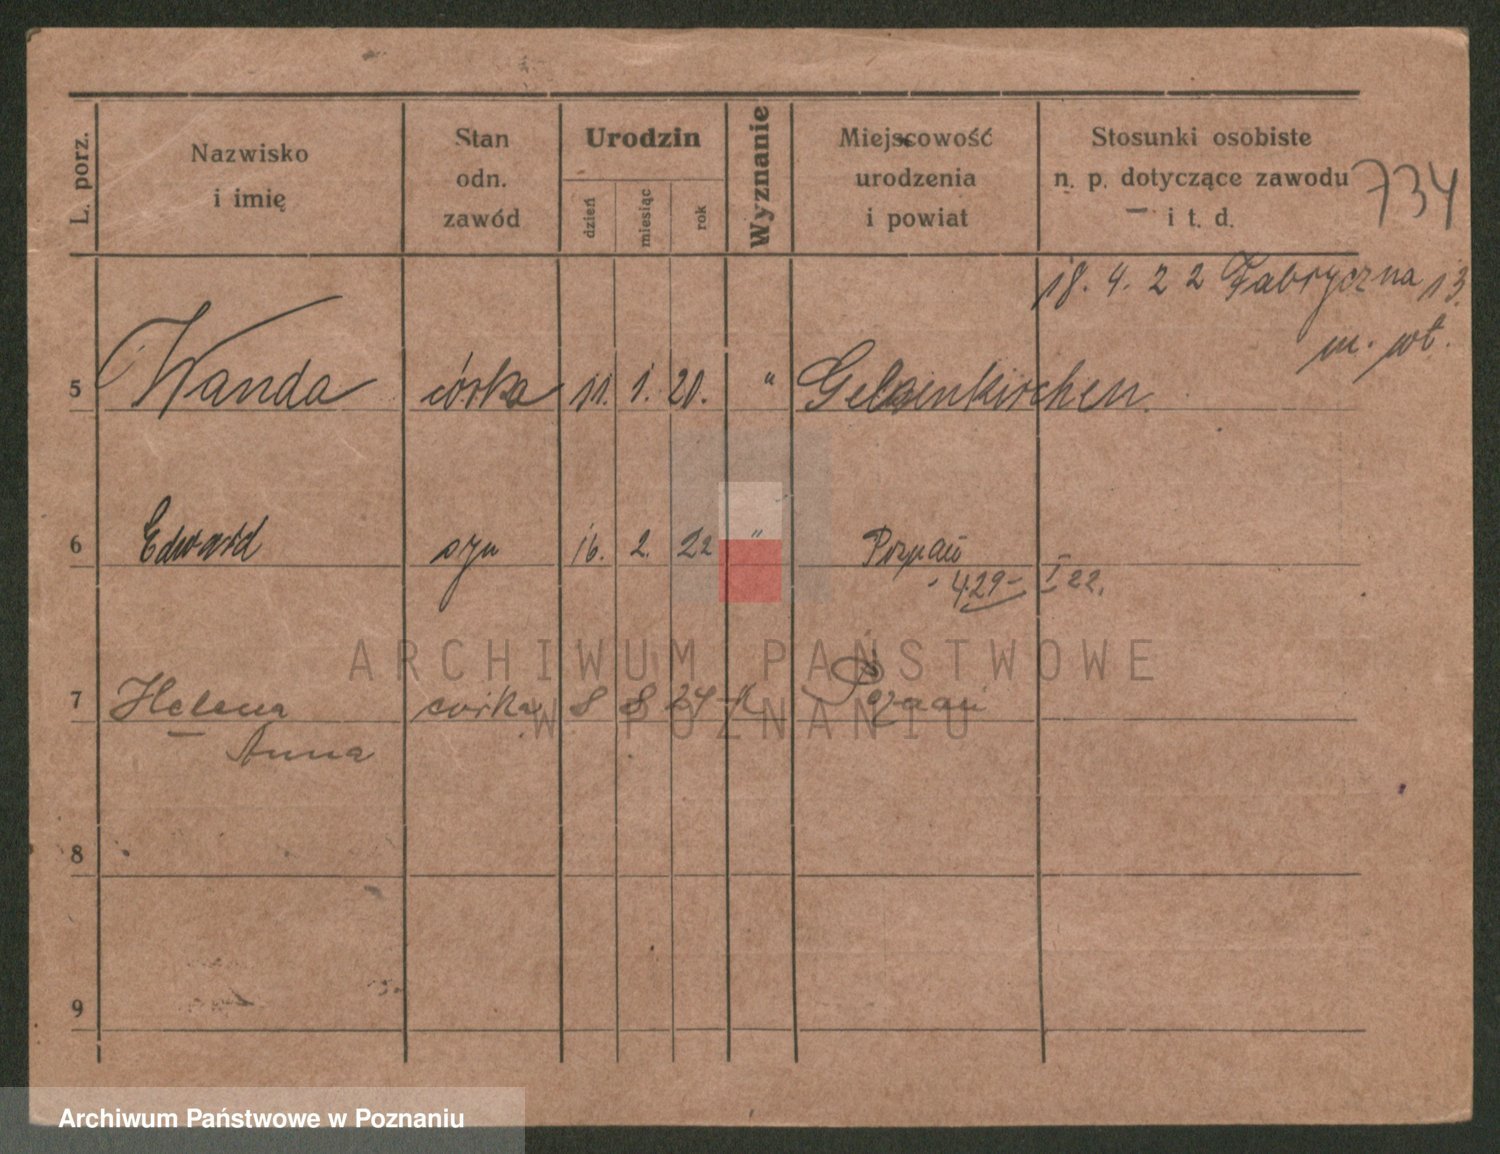 L. porz.
Nazwisko
i imię
Stan
odn.
zawód
Urodzin
dzień
miesiąc
rok
Wyznanie
Miejscowość
urodzenia
i powiat
Stosunki osobiste
n. p. dotyczące zawodu
i t. d.
734
18. 4. 22 Fabryczna 13.
m. wł.
5 Wanda córka 11. 1. 20. " Gelsenkirchen.
6 Edward syn 16. 2. 22 " Poznań
429 - I 22.
7 Helena córka 8 8 24 k Poznań
Anna
8
9
ARCHIWUM PAŃSTWOWE
W POZNANIU
Archiwum Państwowe w Poznaniu